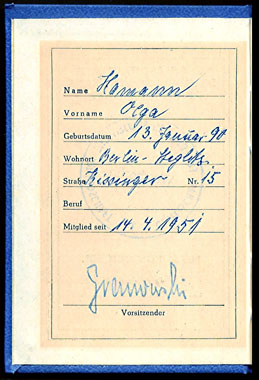 Name Hamann
Vorname Olga
Geburtsdatum 13. Januar 90
Wohnort Berlin-Steglitz
Straße Kissinger Nr. 15
Beruf
Mitglied seit 14. 4. 1951
Vorsitzender